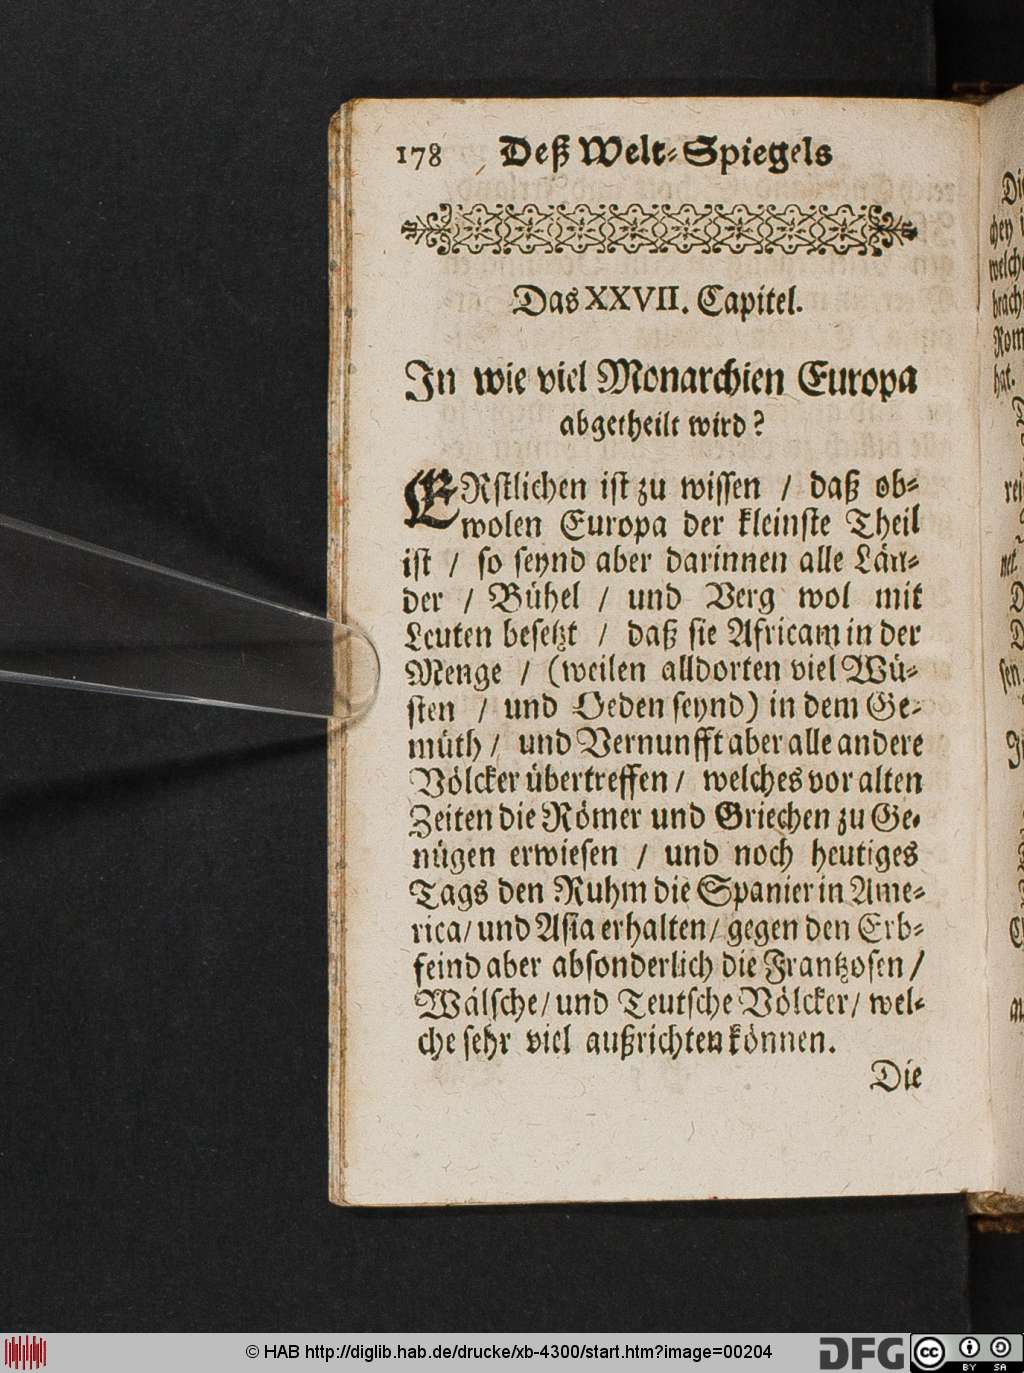 178 Deß Welt-Spiegels
Das XXVII. Capitel.
In wie viel Monarchien Europa
abgetheilt wird?
ERstlichen ist zu wissen / daß ob-
wolen Europa der kleinste Theil
ist / so seynd aber darinnen alle Län-
der / Bühel / und Verg wol mit
Leuten besetzt / daß sie Africam in der
Menge / (weilen alldorten viel Wü-
sten / und Oeden seynd) in dem Ge-
müth / und Vernunfft aber alle andere
Völcker übertreffen / welches vor alten
Zeiten die Römer und Griechen zu Ge-
nügen erwiesen / und noch heutiges
Tags den Ruhm die Spanier in Ame-
rica / und Asia erhalten / gegen den Erb-
feind aber absonderlich die Frantzosen /
Wälsche / und Teutsche Völcker / wel-
che sehr viel außrichten können.
Die
© HAB http://diglib.hab.de/drucke/xb-4300/start.htm?image=00204
DFG
cc BY SA